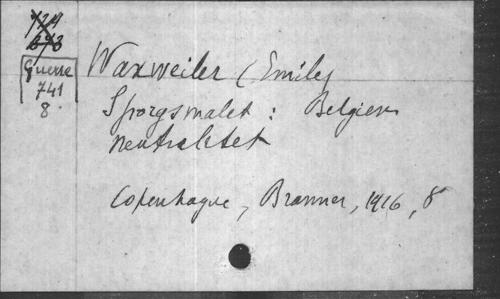 Guerre
741
8.
Waxweiler (Emile)
Sporgsmalet : Belgiens
neutralitet
Copenhague, Branner, 1916, 8